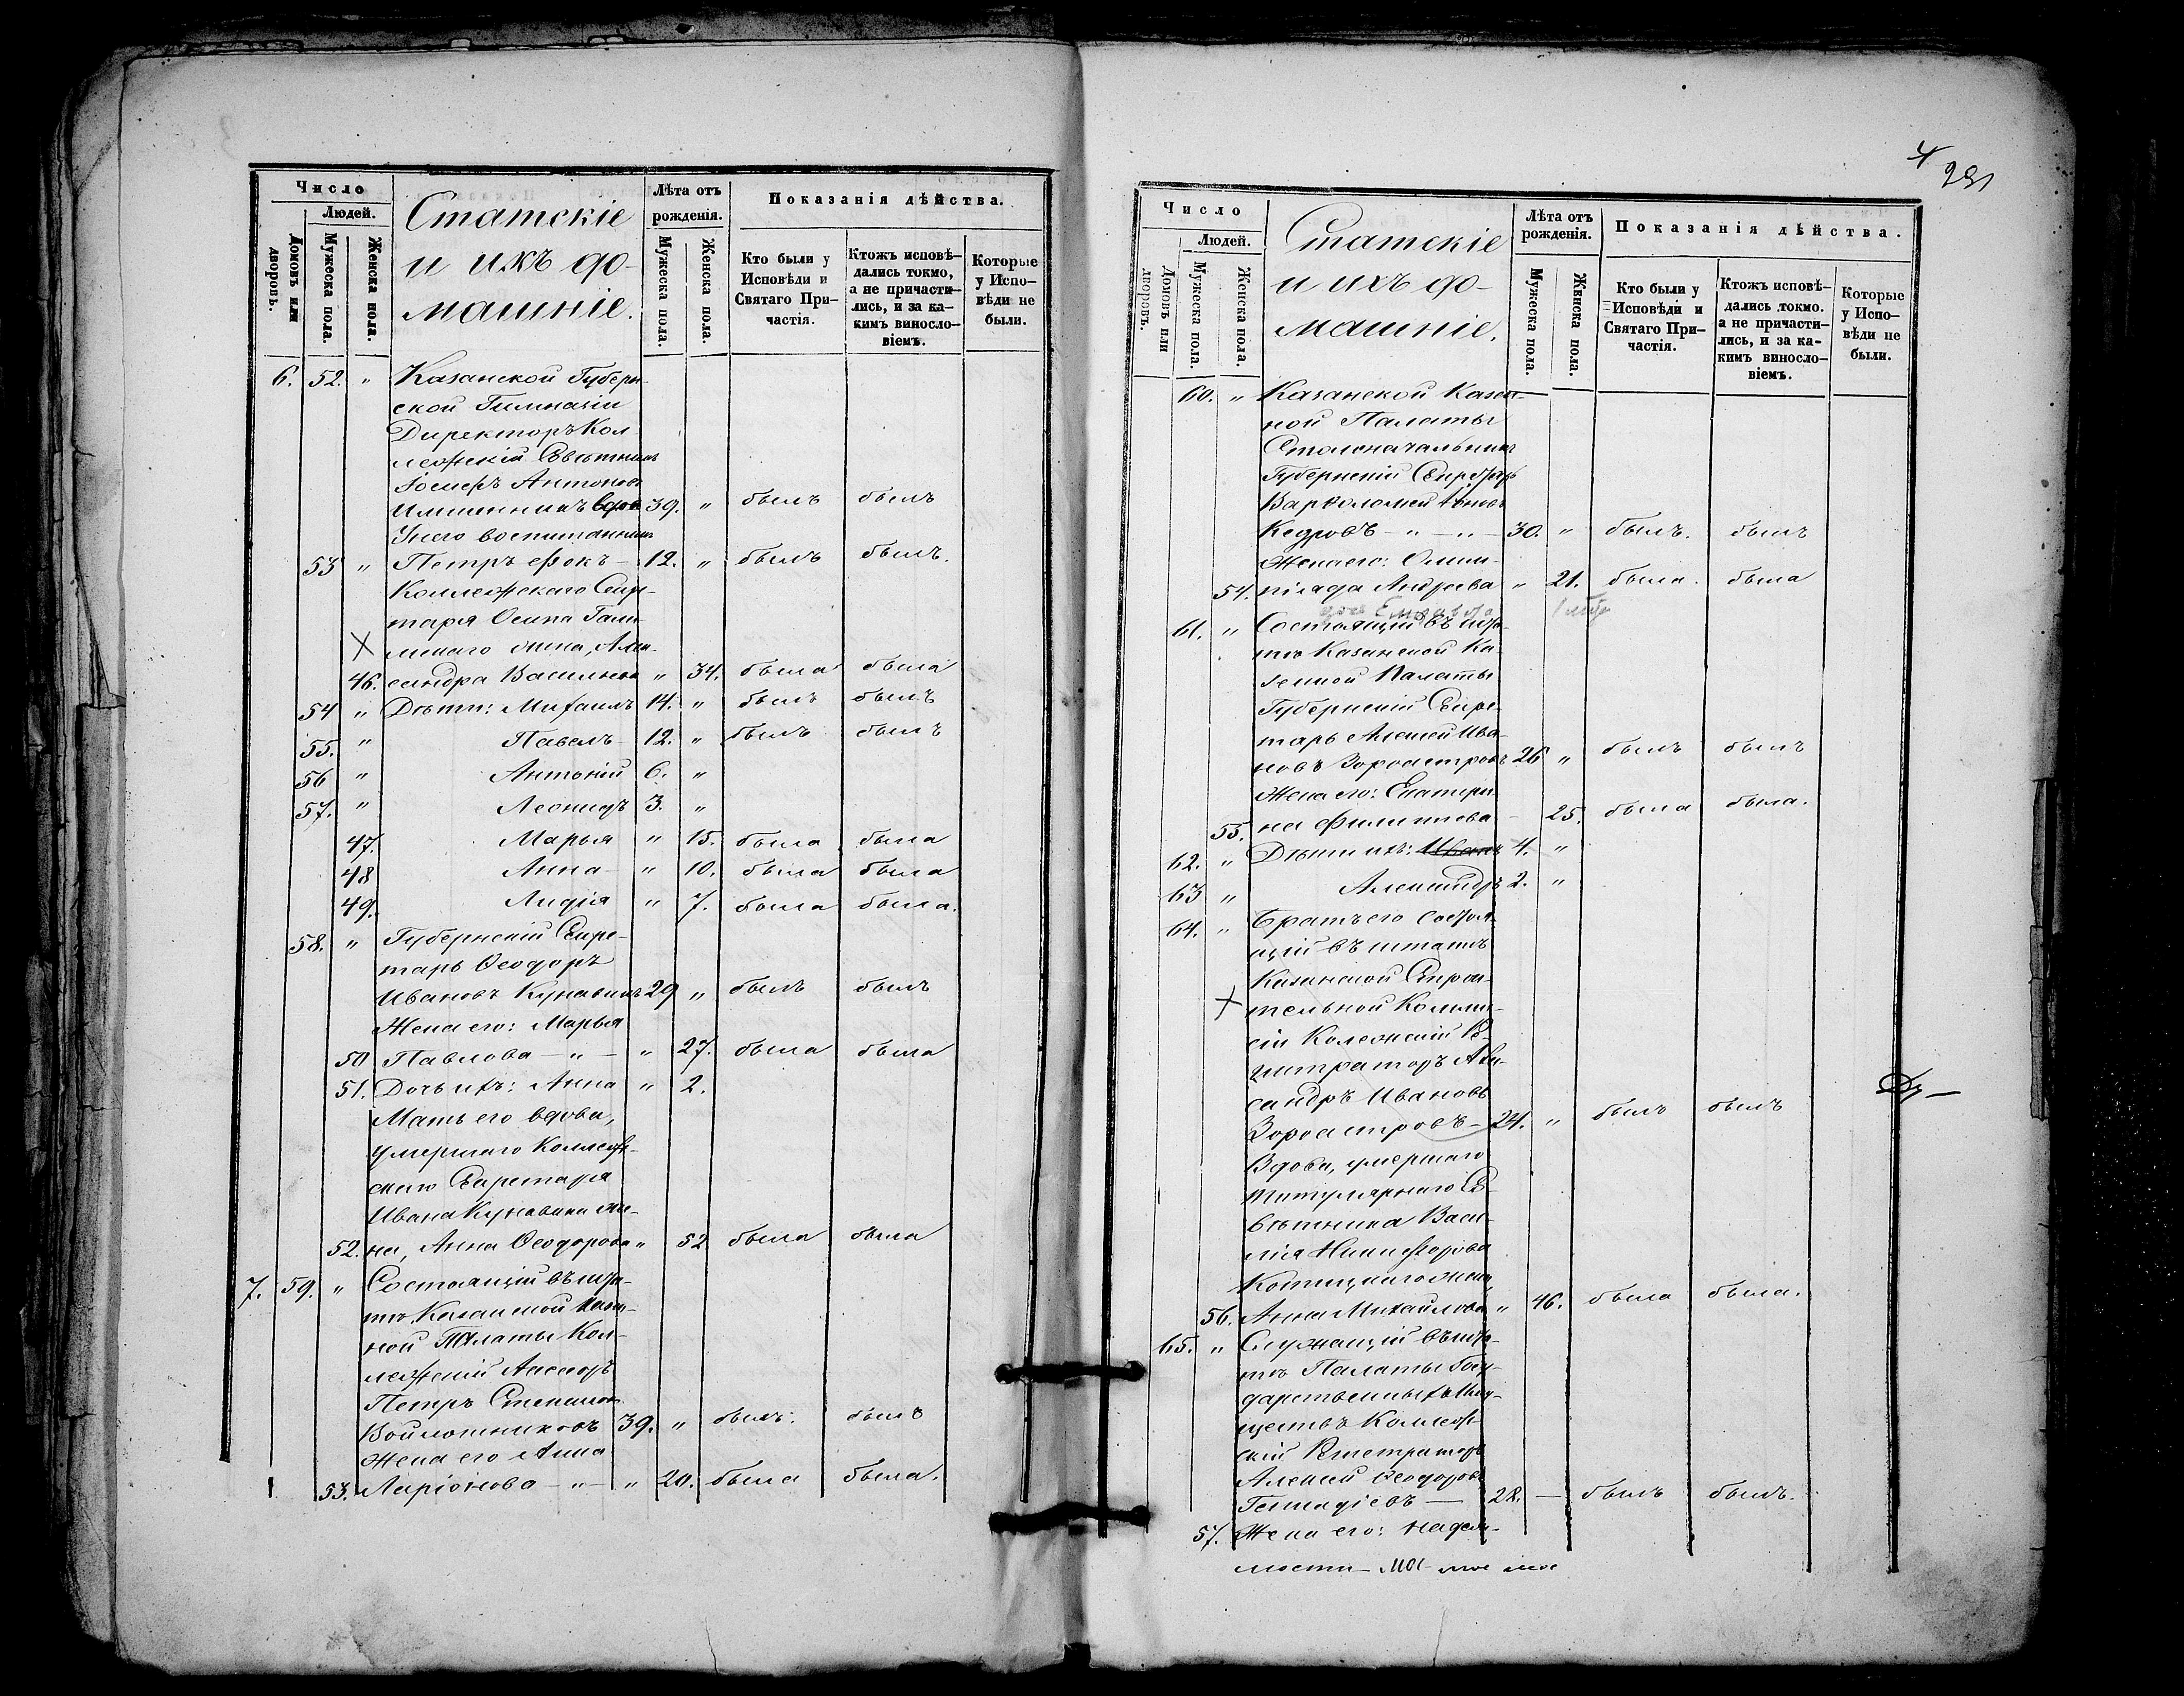 Число
Людей.
Домовъ или дворовъ.
Мужеска пола.
Женска пола.
Статскіе
и ихъ до-
машніе.
Лѣта отъ
рожденія.
Мужеска пола.
Женска пола.
Показанія дѣйства.
Кто были у
Исповѣди и
Святаго При-
частія.
Ктожъ исповѣ-
дались токмо,
а не причасти-
лись, и за ка-
кимъ виносло-
віемъ.
Которые
у Испо-
вѣди не
были.
6. 52. " Казанской Губерн-
ской Гимназіи
Директоръ Кол
лежскій Совѣтникъ
Антоновъ
39. " былъ былъ
У него воспитанникъ
53 " Петръ Фокъ - 12. " былъ былъ.
Коллежскаго Секр-
таря Осипа
жена, Алек-
46. сандра Васильева " 34. была была
54 " Дѣти: Михаилъ 14. " былъ былъ
55. " Павелъ 12. " былъ былъ
56 " Антоній 6. "
57. " Леонидъ 3. "
47. Марья " 15. была была
48 Анна - " 10. была была
49. Лидія " 7. была была.
58. " Губернскій Секре-
тарь Ѳеодоръ
Ивановъ Кунавинъ 29 " былъ былъ
Жена его: Марья
50 Павлова - " - " 27. была была
51. Дочь ихъ: Анна " 2.
Мать его вдова,
умершаго Коллеж-
скаго Секретаря
Ивана Кунавина же-
52. на, Анна Ѳеодорова " 52 была была
7. 59. " Состоящій въ шта-
тѣ Казанской Казен-
ной Палаты Кол-
лежскій Ассесоръ
Петръ Степановъ
Войлошниковъ 39. " былъ. былъ
Жена его Анна
53. Ларіонова - " - " 20. была была.
4
291
Число
Людей.
Домовъ или дворовъ.
Мужеска пола.
Женска пола.
Статскіе
и ихъ до-
машніе.
Лѣта отъ
рожденія.
Мужеска пола.
Женска пола.
Показанія дѣйства.
Кто были у
Исповѣди и
Святаго При-
частія.
Ктожъ исповѣ-
дались токмо.
а не причасти-
лись, и за ка-
кимъ виносло-
віемъ.
Которые
у Испо-
вѣди не
были.
60. " Казанской Казен-
ной Палаты
Столоначальникъ
Губернскій Секретарь
Варѳоломей
Кедровъ - " - " - 30. " былъ. былъ
Жена его: Олим-
54. піада Андреева " 21. была. была
61. " Состоящій въ шта-
тѣ Казанской Ка-
зенной Палаты
Губернскій Секре-
тарь Алексей Ива-
новъ Зороастровъ 26 " былъ былъ
Жена его: Екатери-
55. на Филиппова - 25. была была.
62. " Дѣти ихъ: Иванъ 4. "
63 " Александръ 2. "
64. " Братъ его состоя-
щій въ штатѣ
Казанской Строи-
тельной Комми-
сіи Колежскій Ре-
гистраторъ Алек-
сандръ Ивановъ
Зороастровъ - 24. " былъ былъ
Вдова, умершаго
Титулярнаго Со-
вѣтника Васи-
лія Никифорова
жена,
56. Анна Михайлова " 46. была была.
65. " Служащій въ шта-
тѣ Палаты Госу-
дарственныхъ Иму-
ществъ Коллеж-
скій Регистраторъ
Алексей Ѳеодоровъ
Геннадіевъ - 28. - былъ былъ.
57. Жена его: Надеж-